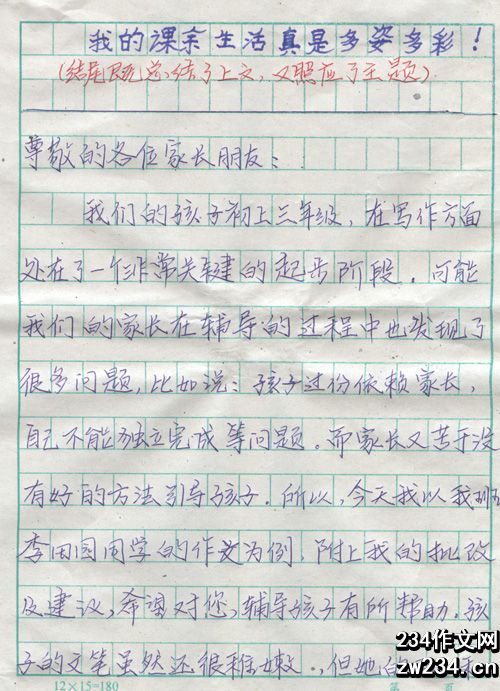 我的课余生活真是多姿多彩！
(结尾既总结了上文，又照应了主题)
尊敬的各位家长朋友：
我们的孩子初上三年级，在写作方面
处在了一个非常关键的起步阶段。可能
我们的家长在辅导的过程中也发现了
很多问题，比如说：孩子过份依赖家长，
自己不能独立完成等问题。而家长又苦于没
有好的方法引导孩子。所以，今天我以我班
李田园同学的作文为例，附上我的批改
及建议，希望对您，辅导孩子有所帮助。孩
子的文笔虽然还很稚嫩，但她的
12×15=180
第 页
234作文网
zw234.cn